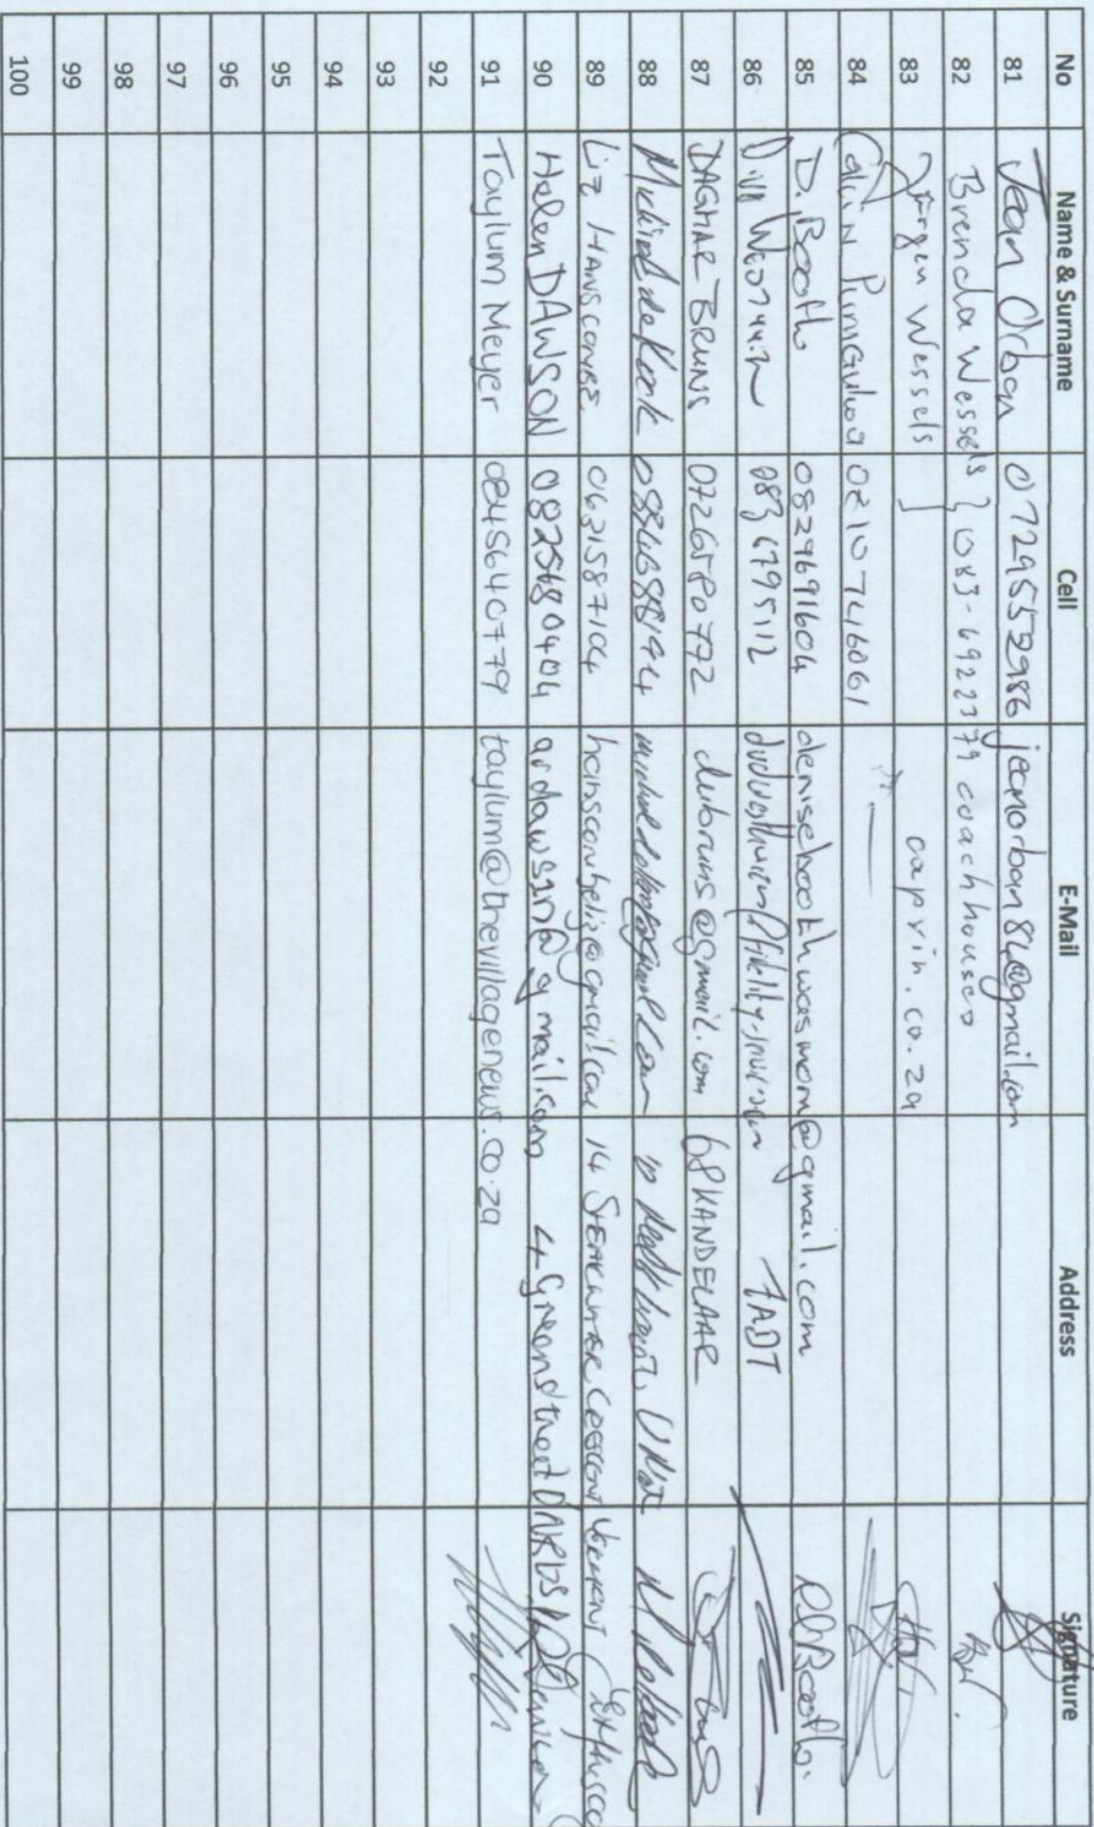 No Name & Surname Cell E-Mail Address Signature
81 Jean Orban 0729552986 jeanorban86@gmail.com
82 Brenda Wessels } 083-6922379 coachhouse@
83 Jurgen Wessels caprih.co.za
84 0210746061
85 D. Booth 0829691604 deniseboothwasmom@gmail.com
86 0836795112 7ADT
87 DAGMAR BRUNS 0726580772 dubruns@gmail.com 68 KANDELAAR
88 Michiel de Kock
89 Liz HANSCOMBE. 0631587104 hanscombeliz@gmail.com 14 STEMKUNTER CRESCENT VERMONT
90 Helen DAWSON 0825680404 ardaws1n@gmail.com 4 Green street ONRUS
91 Taylum Meyer 0845640779 taylum@thevillagenews.co.za
92
93
94
95
96
97
98
99
100